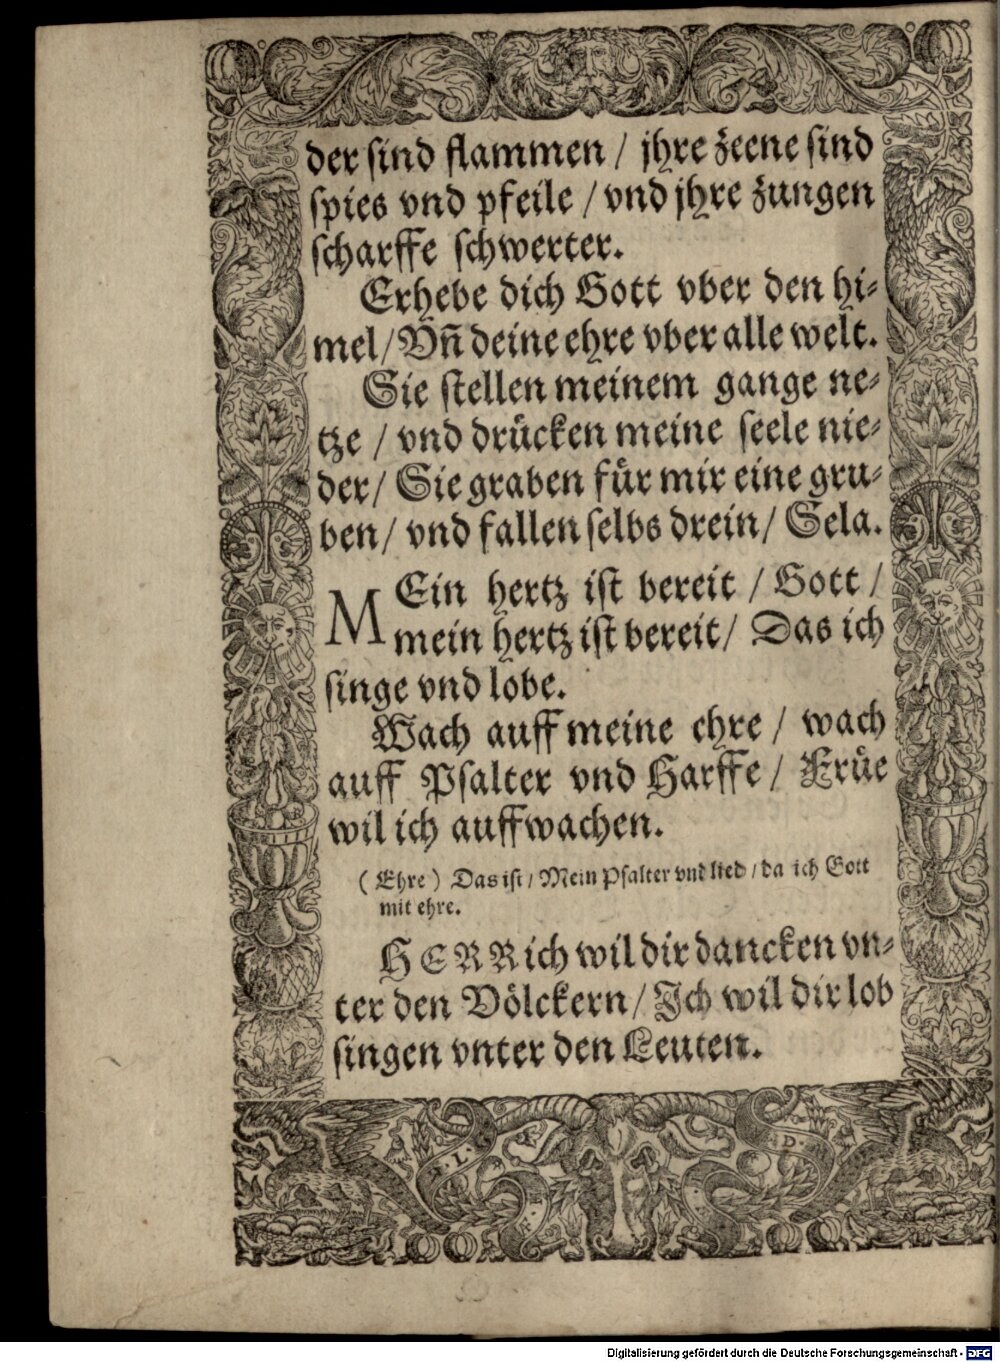 der sind flammen / jhre zeene sind
spies vnd pfeile / vnd jhre zungen
scharffe schwerter.
Erhebe dich Gott vber den hi-
mel / Vñ deine ehre vber alle welt.
Sie stellen meinem gange ne-
tze / vnd drücken meine seele nie-
der / Sie graben für mir eine gru-
ben / vnd fallen selbs drein / Sela.
MEin hertz ist bereit / Gott /
mein hertz ist bereit / Das ich
singe vnd lobe.
Wach auff meine ehre / wach
auff Psalter vnd Harffe / Früe
wil ich auffwachen.
(Ehre) Das ist / Mein Psalter vnd lied / da ich Gott
mit ehre.
HERR ich wil dir dancken vn-
ter den Völckern / Ich wil dir lob
singen vnter den Leuten.
Digitalisierung gefördert durch die Deutsche Forschungsgemeinschaft - DFG